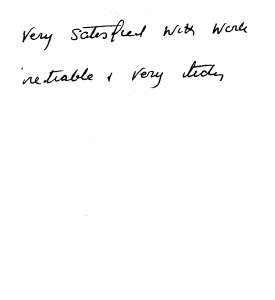 Very Satisfied with work
reliable & very tidy